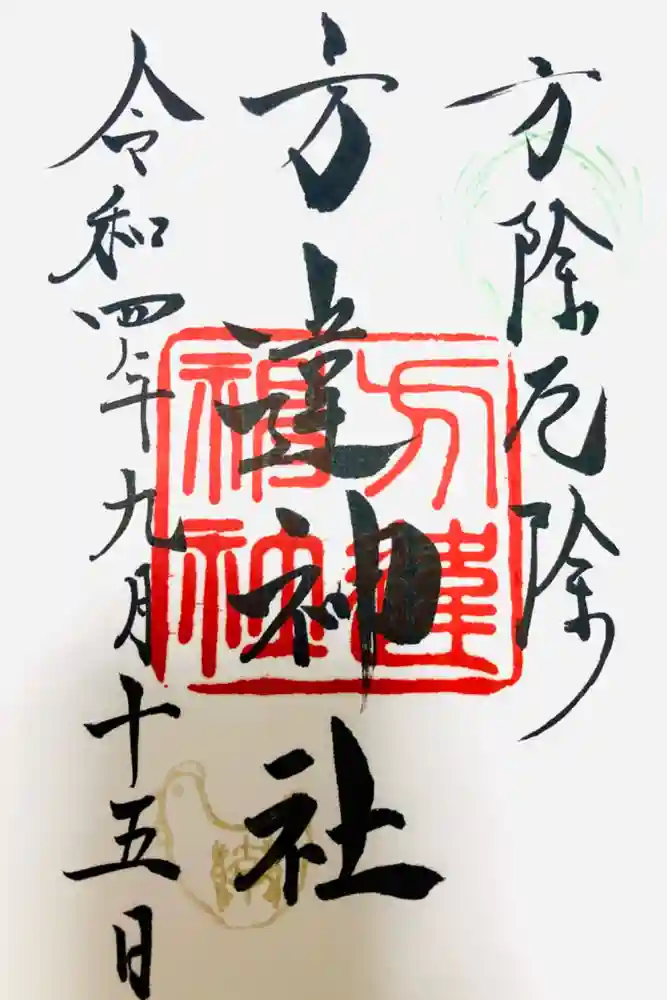 方除厄除
方違神社
方違
神社
令和四年九月十五日